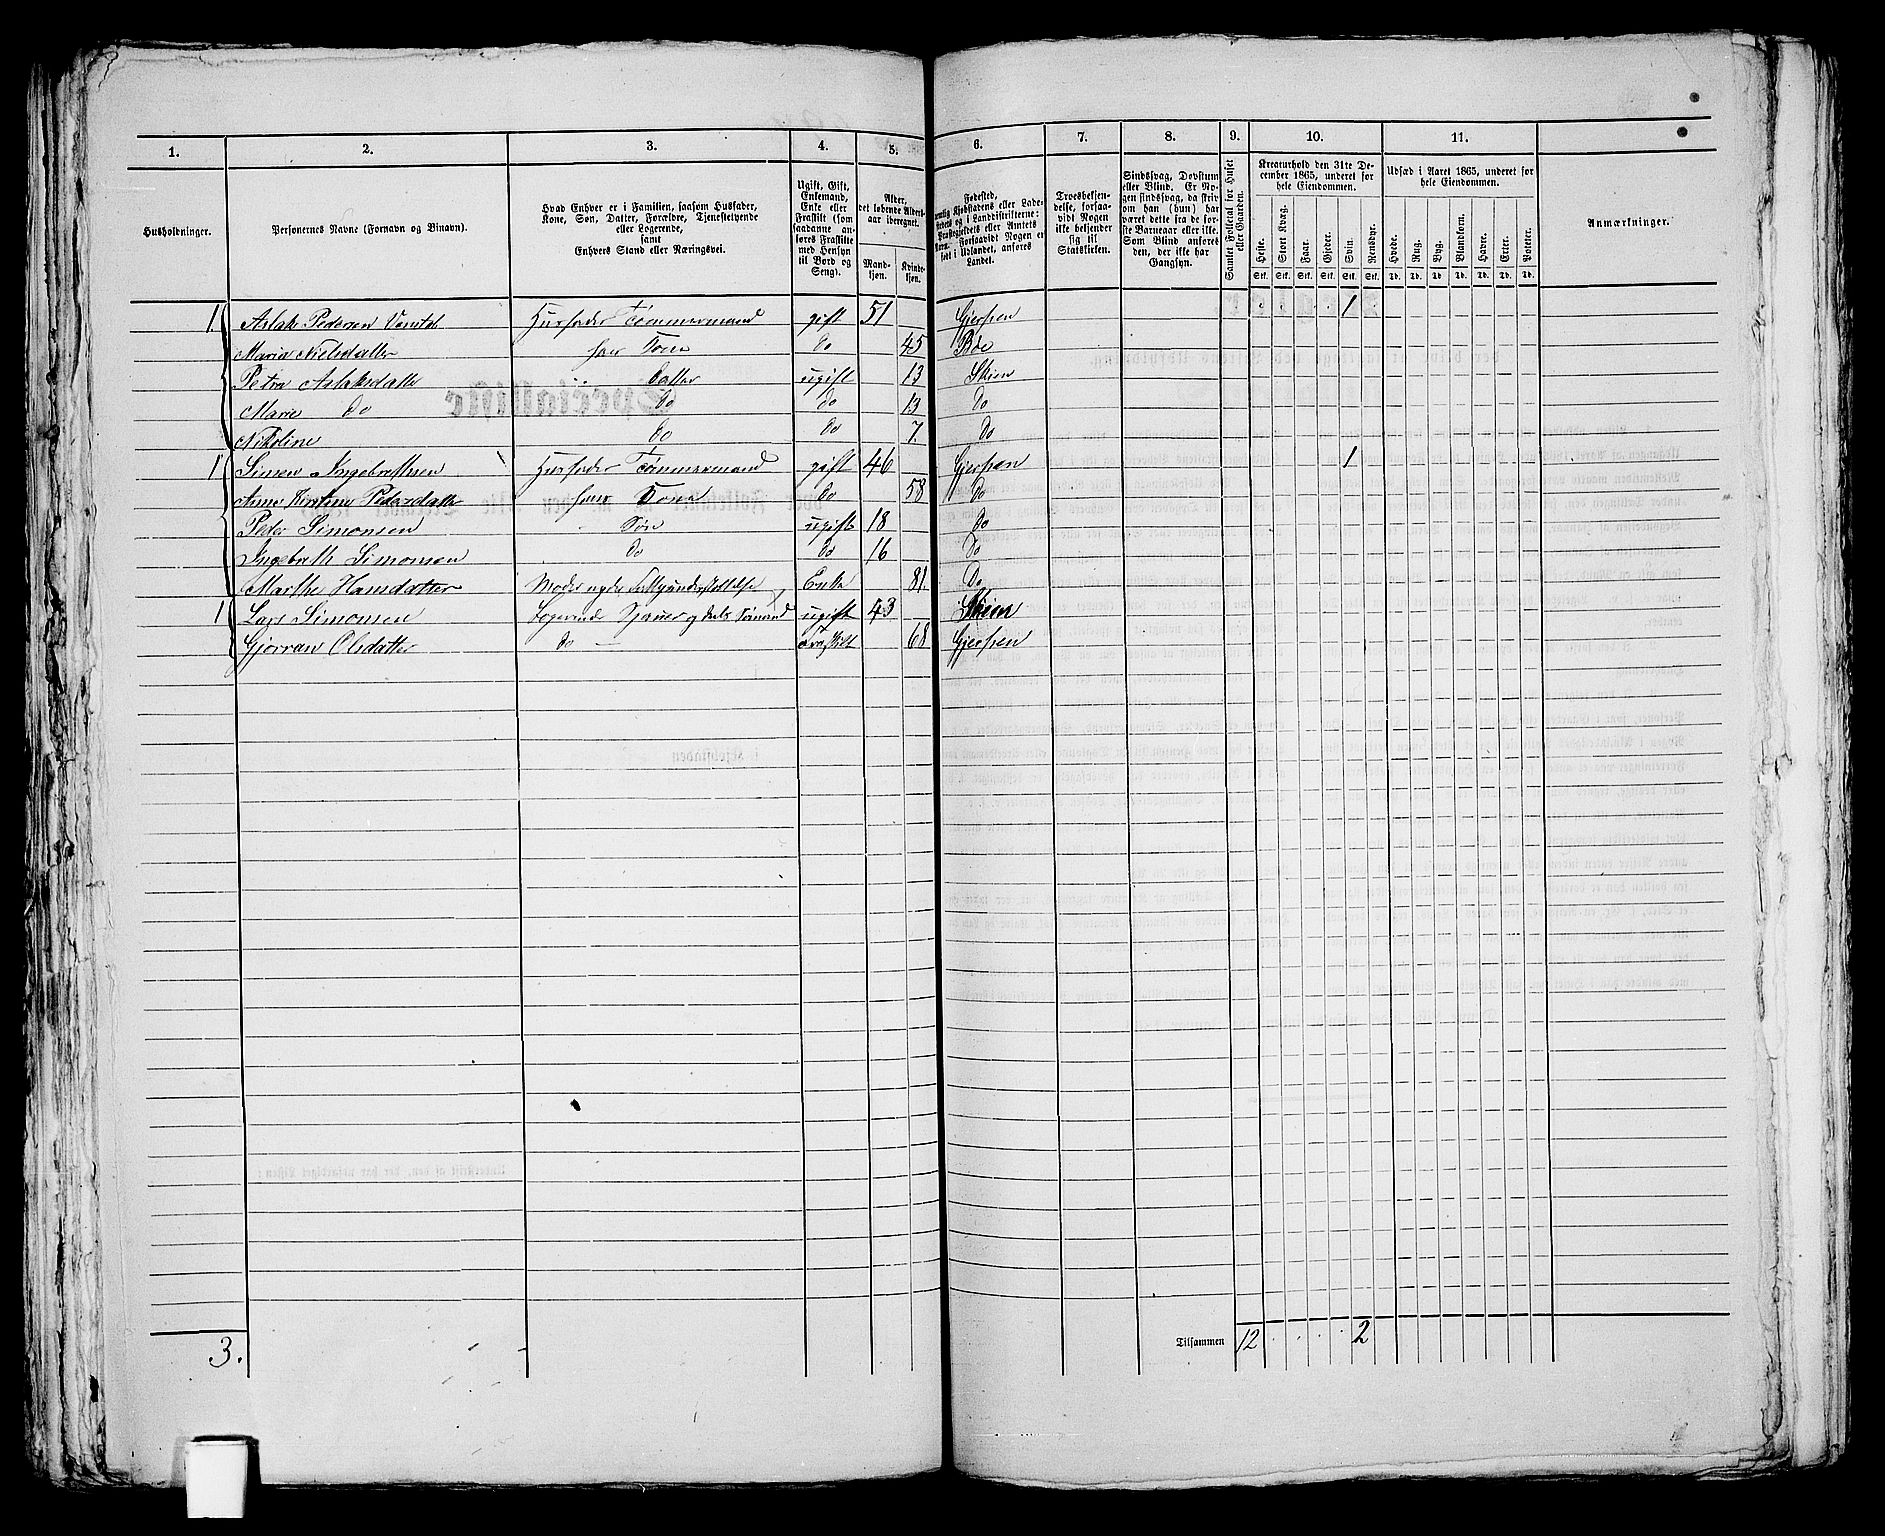 1. 2. 3. 4. 5. 6. 7. 8. 9. 10. 11.
Husholdninger.
Personernes Navne (Fornavn og Binavn).
Hvad Enhver er i Familien, saasom Husfader,
Kone, Søn, Datter, Forældre, Tjenestetyende
eller Logerende,
samt
Enhvers Stand eller Næringsvei.
Ugift, Gift,
Enkemand,
Enke eller
Fraskilt (som
saadanne an-
føres Fraskilte
med Hensyn
til Bord og
Seng).
Alder,
det løbende Alders-
aar iberegnet.
Mand-
kjøn.
Kvinde-
kjøn.
Fødested,
Kjøbstadens eller Lade-
i Landdistrikterne:
eller Amtets
Navn. Forsaavidt Nogen er
født i Udlandet, anføres
Landet.
Troesbekjen-
delse, forsaa-
vidt Nogen
ikke bekjender
sig til
Statskirken.
Sindssvag, Døvstum
eller Blind. Er No-
gen sindssvag, da skriv
om han (hun) har
været dette fra de
første Barneaar eller ikke.
Som Blind anføres
den, der ikke har
Gangsyn.
Samlet Folketal for Huset
eller Gaarden.
Kreaturhold den 31te De-
cember 1865, underet for
hele Eiendommen.
Heste. Stort Kvæg. Faar. Gjeder. Svin. Rensdyr.
Stk. Stk. Stk. Stk. Stk. Stk.
Udsæd i Aaret 1865, underet for
hele Eiendommen.
Hvede. Rug. Byg. Blandkorn. Havre. Erter. Poteter.
Td. Td. Td. Td. Td. Td. Td.
Anmærkninger.
1. Aslak Pedersen Husfader Tømmermand gift 51 Gjerpen 1
Maria Nielsdatter hans Kone do 45 Bøe
Petra Aslaksdatte Datter ugift 13 Skien
Marie do do do 13 do
Nikoline do do 7. do
1 Simen Ingebrethsen Husfader Tømmermand gift 46 Gjerpen 1
Anne Kirstine Pedersdatte hans Kone do 58 do
Peder Simonsen Søn ugift 18 do
Ingebreth Simonsen do do 16 do
Marthe Hansdatter Moder nyder Fattigunderstøttelse Enke 81. do
1 Lars Simonsen Logerende ugift 43 Skien
Gjorran Olsdatter do fraskilt 68 Gjerpen
3. Tilsammen 12 2